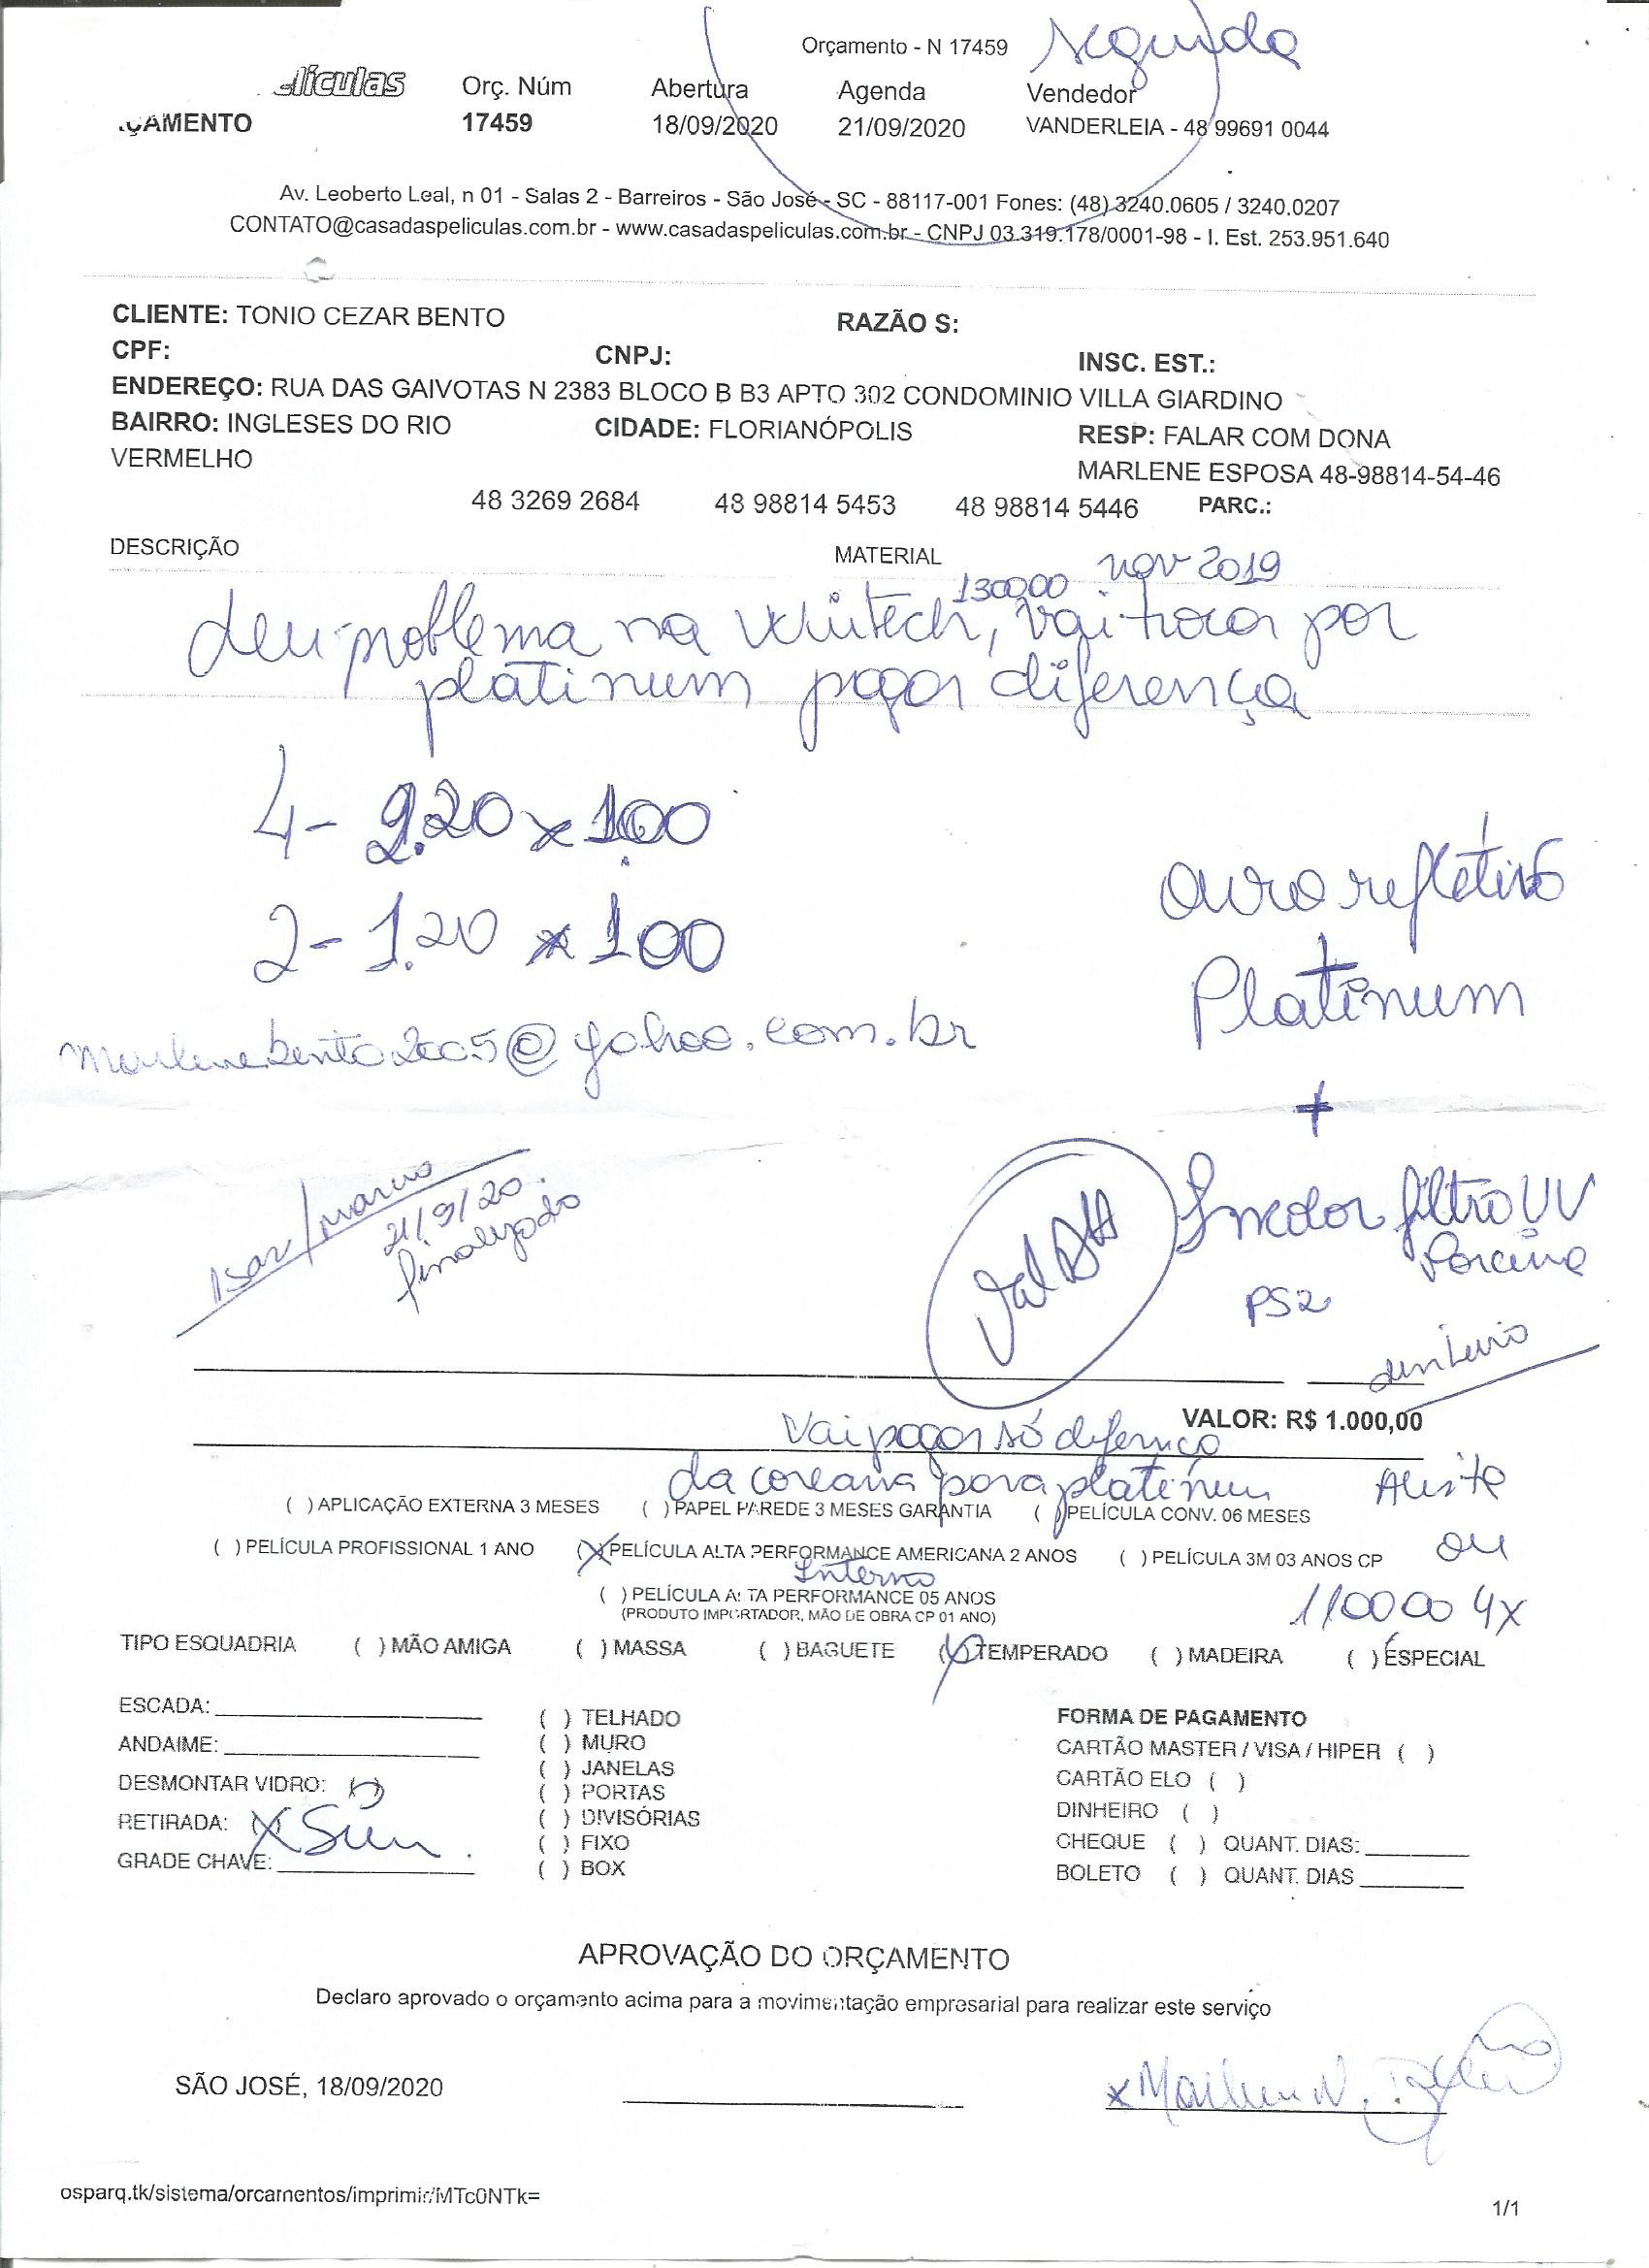 Orçamento - N 17459 segunda
Orç. Núm Abertura Agenda Vendedor
17459 18/09/2020 21/09/2020 VANDERLEIA - 48 99691 0044
Av. Leoberto Leal, n 01 - Salas 2 - Barreiros - São José - SC - 88117-001 Fones: (48) 3240.0605 / 3240.0207
CONTATO@casadaspeliculas.com.br - www.casadaspeliculas.com.br - CNPJ 03.319.178/0001-98 - I. Est. 253.951.640
CLIENTE: TONIO CEZAR BENTO RAZÃO S:
CPF: CNPJ: INSC. EST.:
ENDEREÇO: RUA DAS GAIVOTAS N 2383 BLOCO B B3 APTO 302 CONDOMINIO VILLA GIARDINO
BAIRRO: INGLESES DO RIO CIDADE: FLORIANÓPOLIS RESP: FALAR COM DONA
VERMELHO MARLENE ESPOSA 48-98814-54-46
48 3269 2684 48 98814 5453 48 98814 5446 PARC.:
DESCRIÇÃO MATERIAL
130000 nov 2019
deu problema na Wintech, vai trocar por
platinum pagar diferença
4 - 2.20 x 1.00
2 - 1.20 x 1.00
ouro refletivo
Platinum
marlenebento2005@yahoo.com.br
+
Incolor filtro UV
21/9/20
finalizado
PS2
VALOR: R$ 1.000,00
Vai pagar só diferença
da coreana para platinum
( ) APLICAÇÃO EXTERNA 3 MESES ( ) PAPEL PAREDE 3 MESES GARANTIA ( ) PELÍCULA CONV. 06 MESES
ou
( ) PELÍCULA PROFISSIONAL 1 ANO (X) PELÍCULA ALTA PERFORMANCE AMERICANA 2 ANOS ( ) PELÍCULA 3M 03 ANOS CP
Interno
( ) PELÍCULA ALTA PERFORMANCE 05 ANOS
(PRODUTO IMPORTADOR, MÃO DE OBRA CP 01 ANO)
110000 4x
TIPO ESQUADRIA ( ) MÃO AMIGA ( ) MASSA ( ) BAGUETE (X) TEMPERADO ( ) MADEIRA ( ) ESPECIAL
ESCADA:
ANDAIME:
DESMONTAR VIDRO: ( )
RETIRADA: (X) Sim
GRADE CHAVE:
( ) TELHADO
( ) MURO
( ) JANELAS
( ) PORTAS
( ) DIVISÓRIAS
( ) FIXO
( ) BOX
FORMA DE PAGAMENTO
CARTÃO MASTER / VISA / HIPER ( )
CARTÃO ELO ( )
DINHEIRO ( )
CHEQUE ( ) QUANT. DIAS:
BOLETO ( ) QUANT. DIAS
APROVAÇÃO DO ORÇAMENTO
Declaro aprovado o orçamento acima para a movimentação empresarial para realizar este serviço
SÃO JOSÉ, 18/09/2020
osparq.tk/sistema/orcamentos/imprimir/MTc0NTk=
1/1